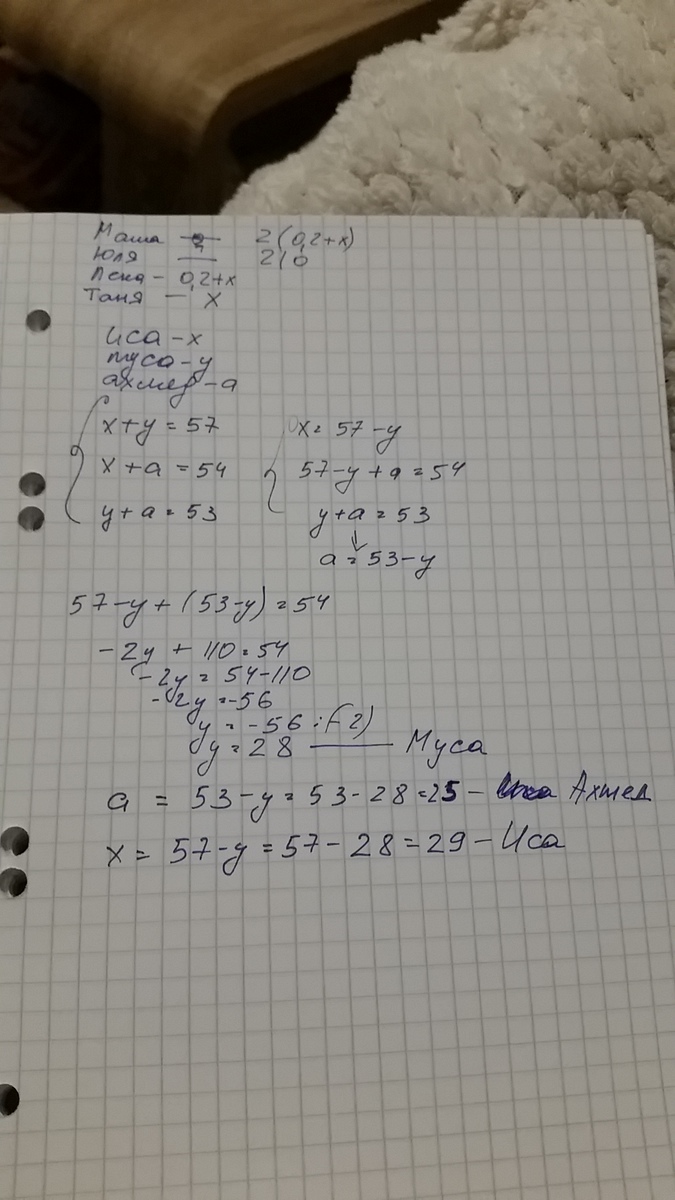 Маша — 2(0,2+x)
Юля — 210
Лена - 0,2+x
Таня — x
иса - x
муса - y
ахмед - a
x+y = 57
x+a = 54
y+a = 53
x = 57-y
57-y+a = 54
y+a = 53
a = 53-y
57-y+(53-y) = 54
-2y + 110 = 54
-2y = 54-110
-2y = -56
y = -56 : (-2)
y = 28 — Муса
a = 53-y = 53-28 = 25 - Ахмед
x = 57-y = 57-28 = 29 - Иса